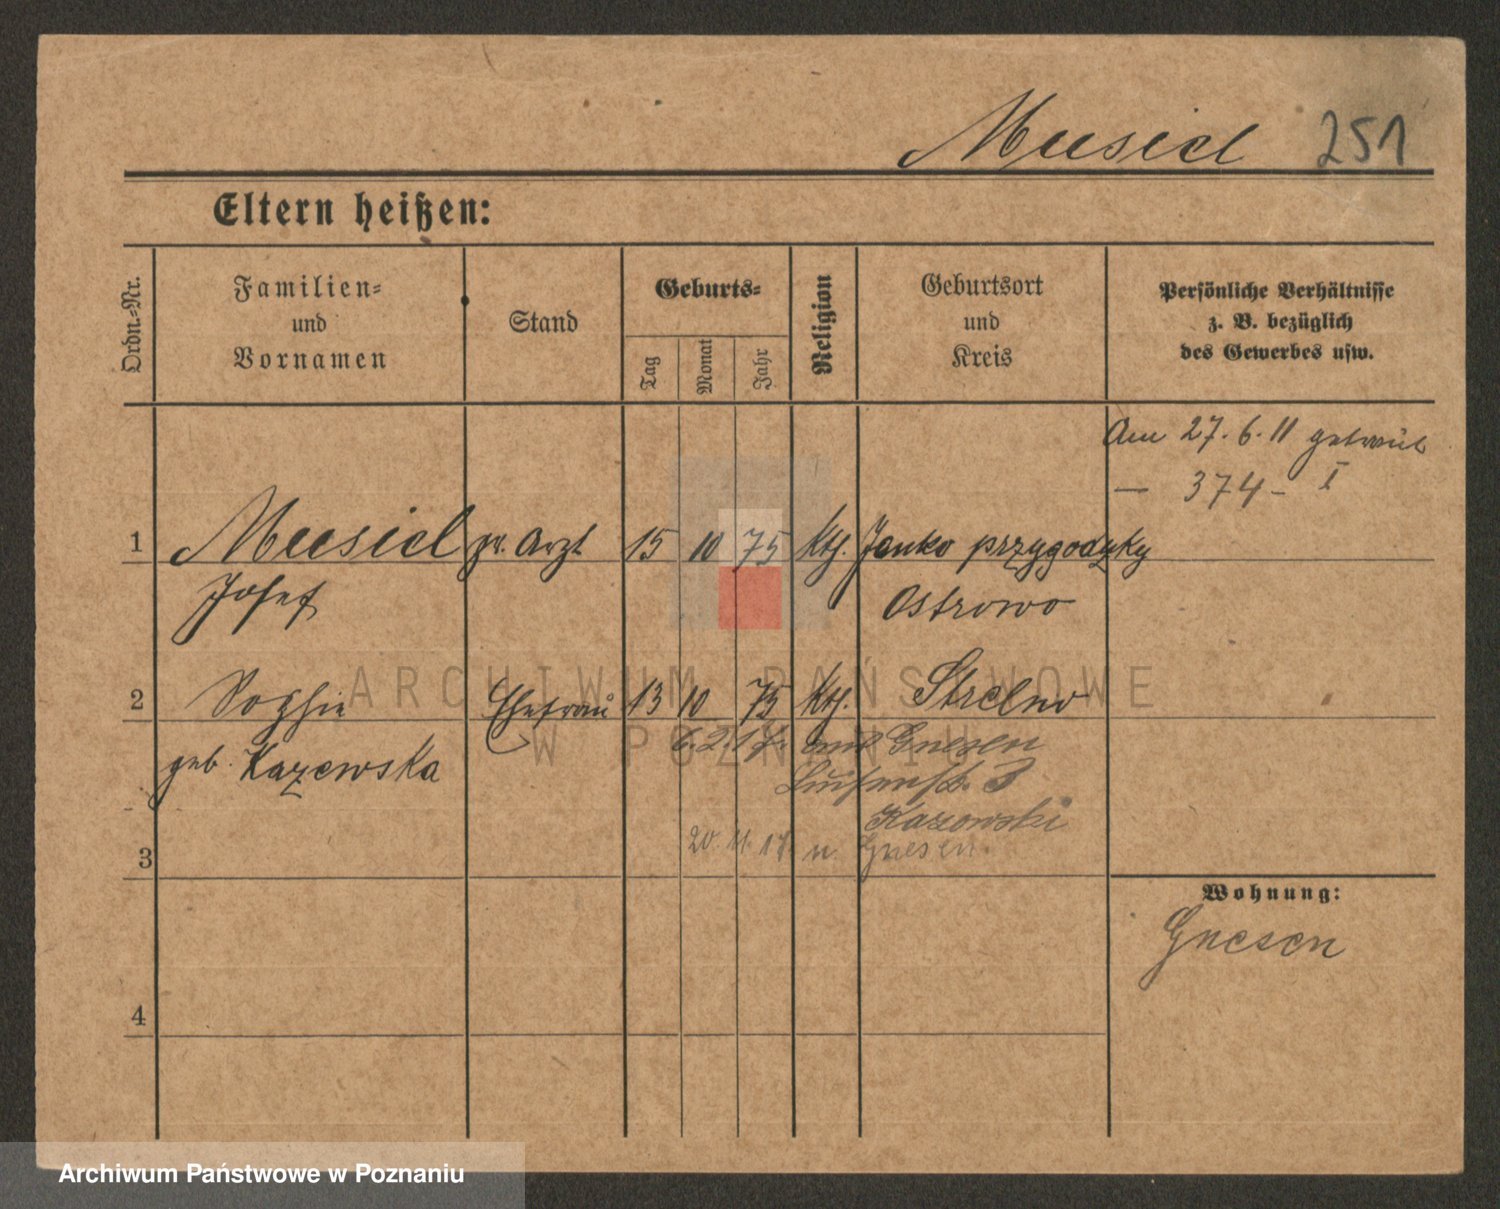 Musiel 251
Eltern heißen:
Ordn.-Nr.
Familien-
und
Vornamen
Stand
Geburts-
Tag
Monat
Jahr
Religion
Geburtsort
und
Kreis
Persönliche Verhältnisse
z. B. bezüglich
des Gewerbes usw.
Am 27.6.11 getraut
— 374 - I
1 Musiel pr. Arzt 15 10 75 Kth. Janko przygodzky
Josef Ostrowo
2 Sophie Ehefrau 13 10 75 Kth. Strelno
geb. Kazewska
6.2.17. Gnesen
3
Kasowski
20.11.17. n. Gnesen.
Wohnung:
Gnesen
4
ARCHIWUM PAŃSTWOWE
W POZNANIU
Archiwum Państwowe w Poznaniu